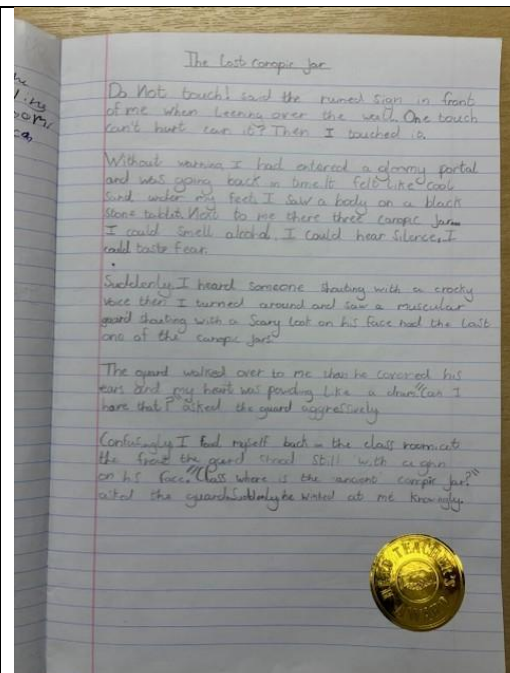 The Lost canopic Jar
Do Not touch! said the ruined sign in front
of me when Leening over the wall. One touch
can't hurt can it? Then I touched it.
Without warning I had entered a gloomy portal
and was going back in time. It felt like cool
sand under my feet. I saw a body on a black
stone tablet. Next to me there three canopic Jars
I could smell alcohol. I could hear silence, I
could taste fear.
Suddenly I heard someone shouting with a crocky
voice then I turned around and saw a muscular
guard shouting with a Scary look on his face had the Lost
one of the canopic jars
The guard walked over to me then he covered his
ears and my heart was pounding like a drum "Can I
have that?" asked the guard aggressively
Confusingly I found myself back in the class room. at
the front the guard stood still with a grin
on his face. "Class where is the ancient canopic jar?"
asked the guard. Suddenly he winked at me knowingly.
HEAD TEACHER'S
AWARD